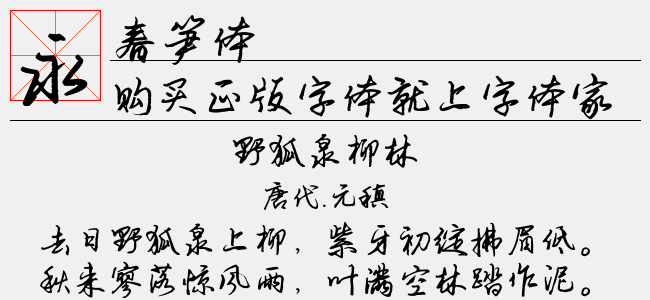 永
春笋体
购买正版字体就上字体家
野狐泉柳林
唐代.元稹
去日野狐泉上柳，紫牙初绽拂眉低。
秋来寥落惊风雨，叶满空林踏作泥。